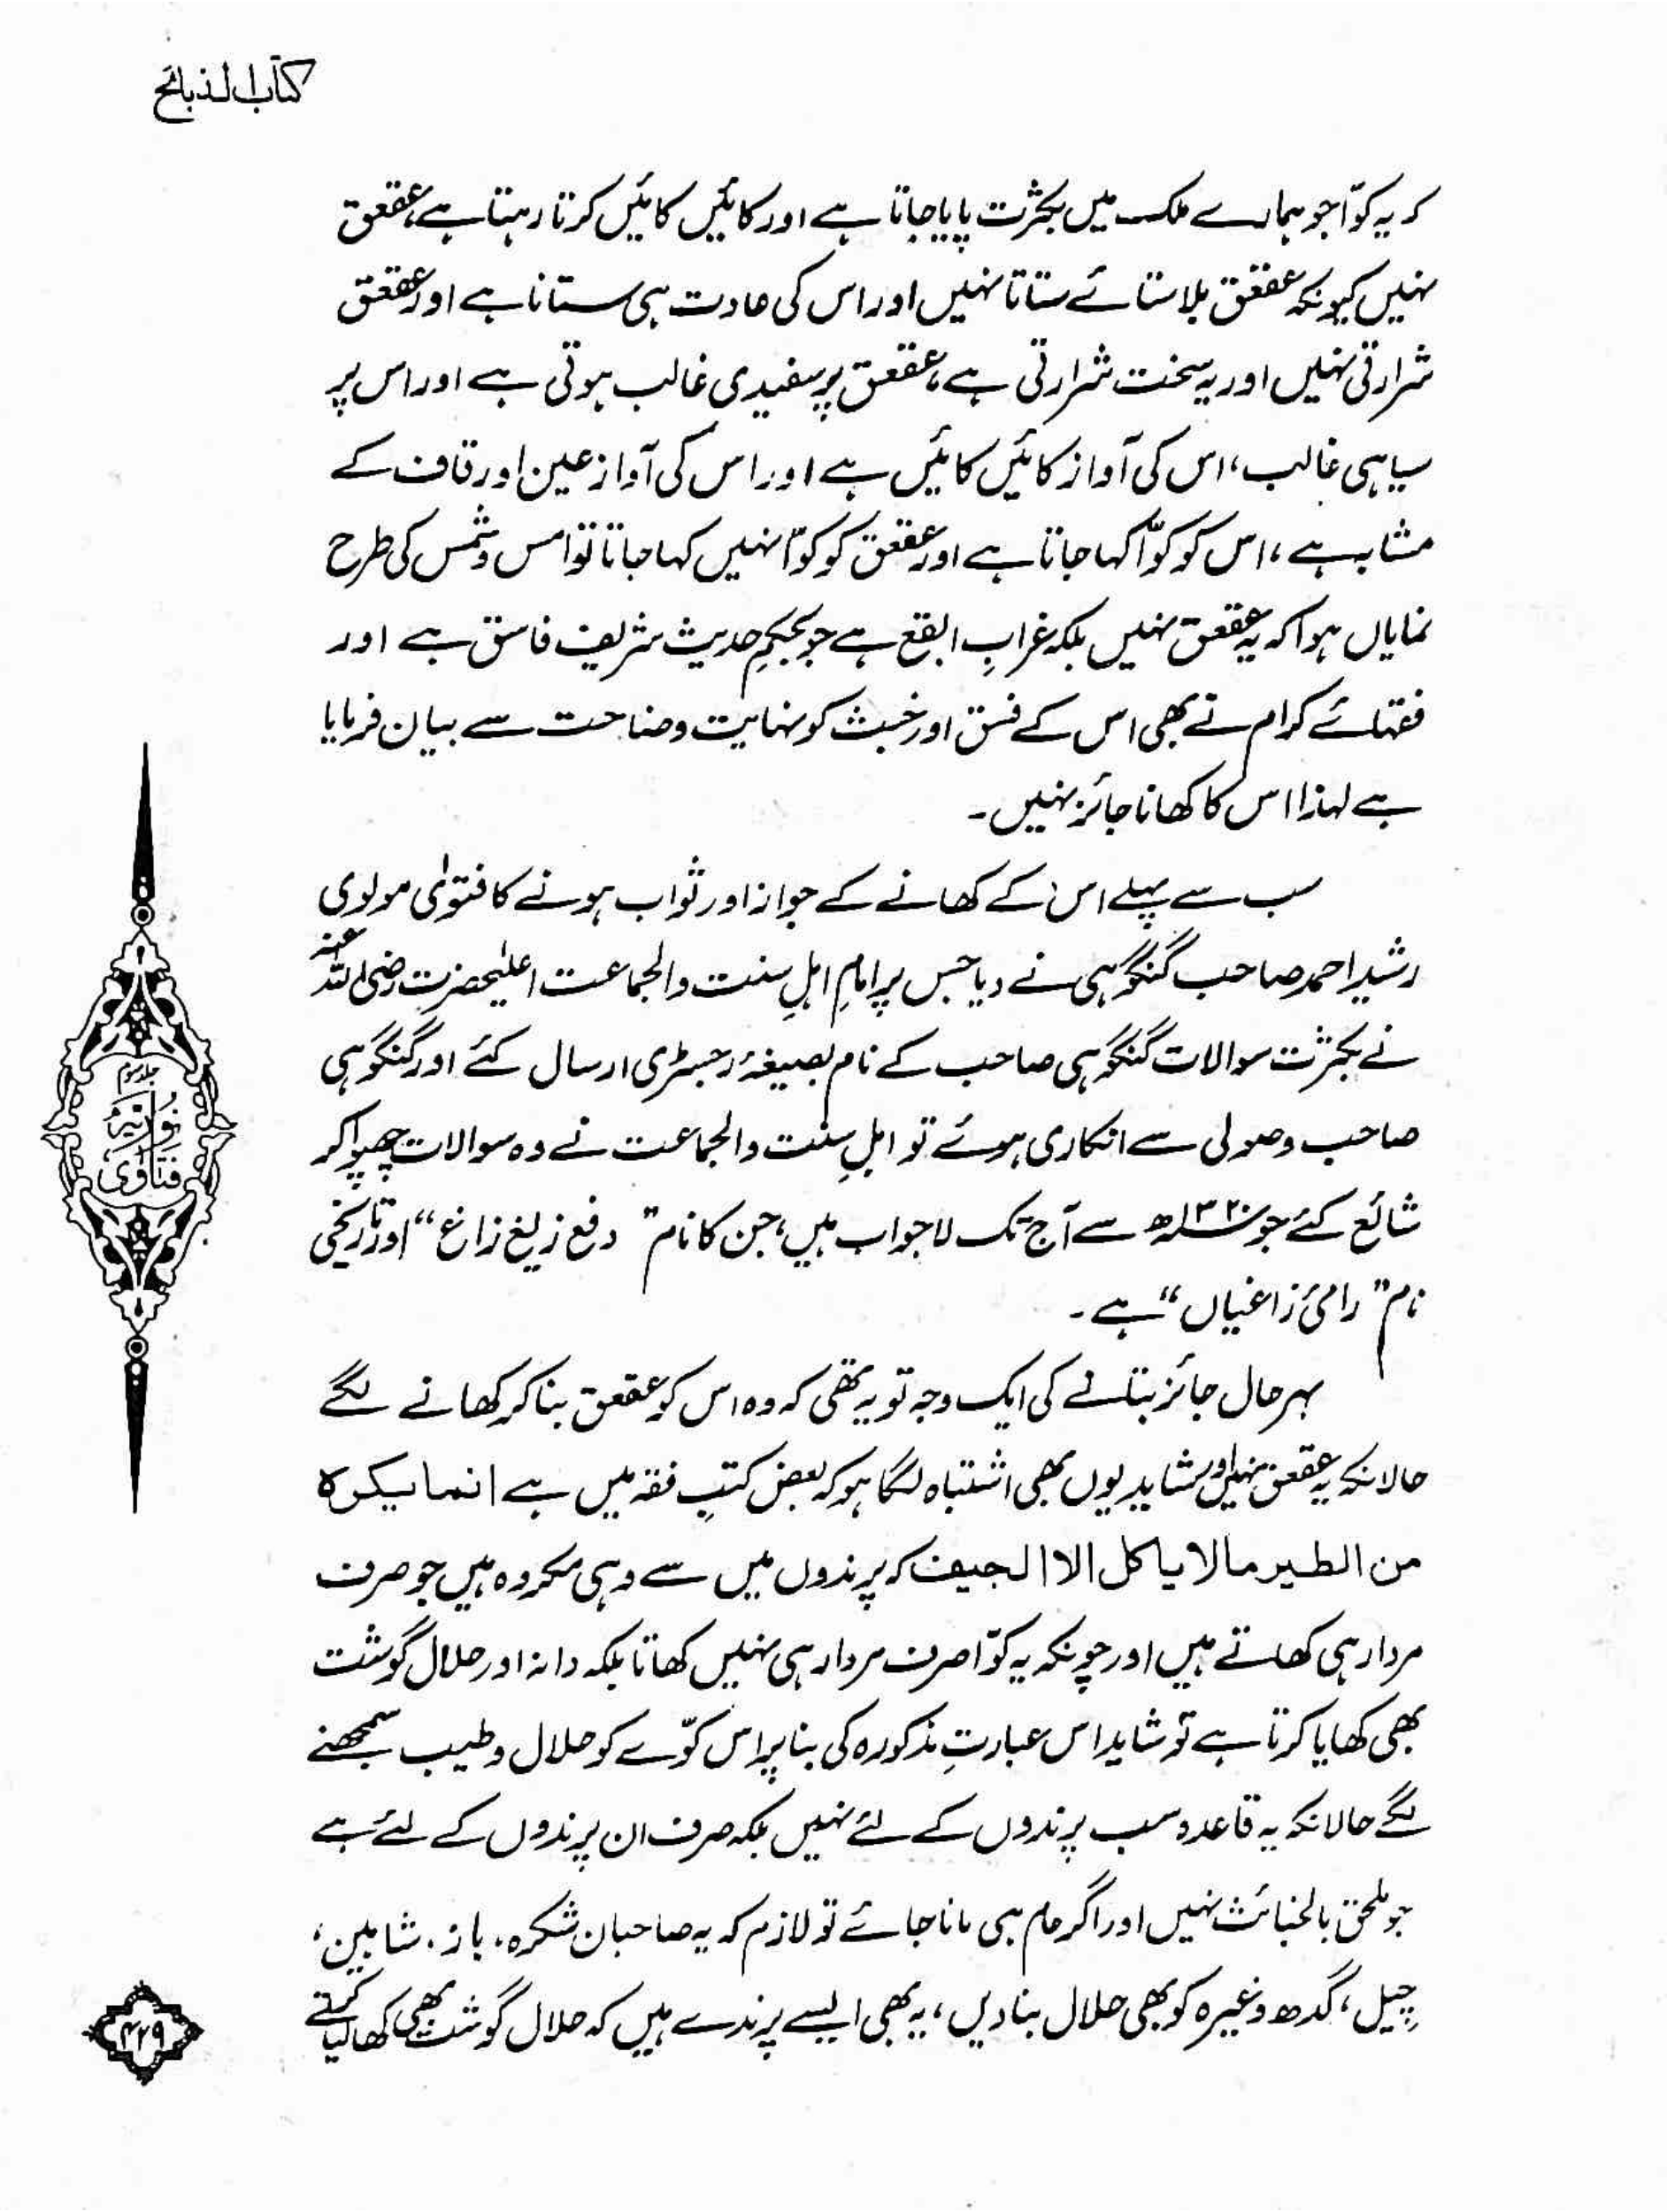 کتاب الذبائح
کہ یہ کوّا جو ہمارے ملک میں بکثرت پایا جاتا ہے اور کائیں کائیں کرتا رہتا ہے، عقعق
نہیں کیونکہ عقعق بلا ستائے ستاتا نہیں اور اس کی عادت ہی ستانا ہے اور عقعق
شرارتی نہیں اور یہ سخت شرارتی ہے، عقعق پر سفیدی غالب ہوتی ہے اور اس پر
سیاہی غالب، اس کی آواز کائیں کائیں ہے اور اس کی آواز عین اور قاف کے
مشابہ ہے، اس کو کوّا کہا جاتا ہے اور عقعق کو کوّا نہیں کہا جاتا تو امس و شمس کی طرح
نمایاں ہوا کہ یہ عقعق نہیں بلکہ غرابِ ابقع ہے جو بحکمِ حدیث شریف فاسق ہے اور
فقہائے کرام نے بھی اس کے فسق اور خبث کو نہایت وضاحت سے بیان فرمایا
ہے لہذا اس کا کھانا جائز نہیں۔
سب سے پہلے اس کے کھانے کے جواز اور ثواب ہونے کا فتوٰی مولوی
رشید احمد صاحب گنگوہی نے دیا جس پر امامِ اہلِ سنت والجماعت اعلیحضرت رضی اللہ عنہ
نے بکثرت سوالات گنگوہی صاحب کے نام بصیغۂ رجسٹری ارسال کئے اور گنگوہی
صاحب وصولی سے انکاری ہوئے تو اہلِ سنت والجماعت نے وہ سوالات چھپوا کر
شائع کئے جو ۱۳۲۰ھ سے آج تک لاجواب ہیں، جن کا نام "دفع زیغ زاغ" اور تاریخی
نام "رامیٔ زاغیاں" ہے۔
بہرحال جائز بتانے کی ایک وجہ تو یہ تھی کہ وہ اس کو عقعق بنا کر کھانے لگے
حالانکہ یہ عقعق نہیں اور شاید یوں بھی اشتباہ لگا ہو کہ بعض کتبِ فقہ میں ہے انما یکرہ
من الطیر مالا یاکل الا الجیف کہ پرندوں میں سے وہی مکروہ ہیں جو صرف
مردار ہی کھاتے ہیں اور چونکہ یہ کوّا صرف مردار ہی نہیں کھاتا بلکہ دانہ اور حلال گوشت
بھی کھایا کرتا ہے تو شاید اس عبارتِ مذکورہ کی بنا پر اس کوّے کو حلال و طیب سمجھنے
لگے حالانکہ یہ قاعدہ سب پرندوں کے لئے نہیں بلکہ صرف ان پرندوں کے لئے ہے
جو ملحق بالخبائث نہیں اور اگر عام ہی مانا جائے تو لازم کہ یہ صاحبان شکرہ، باز، شاہین،
چیل، گدھ وغیرہ کو بھی حلال بنا دیں، یہ بھی ایسے پرندے ہیں کہ حلال گوشت بھی کھا لیا کرتے
جلد سوم
فتاوٰی نوریہ
۴۲۹